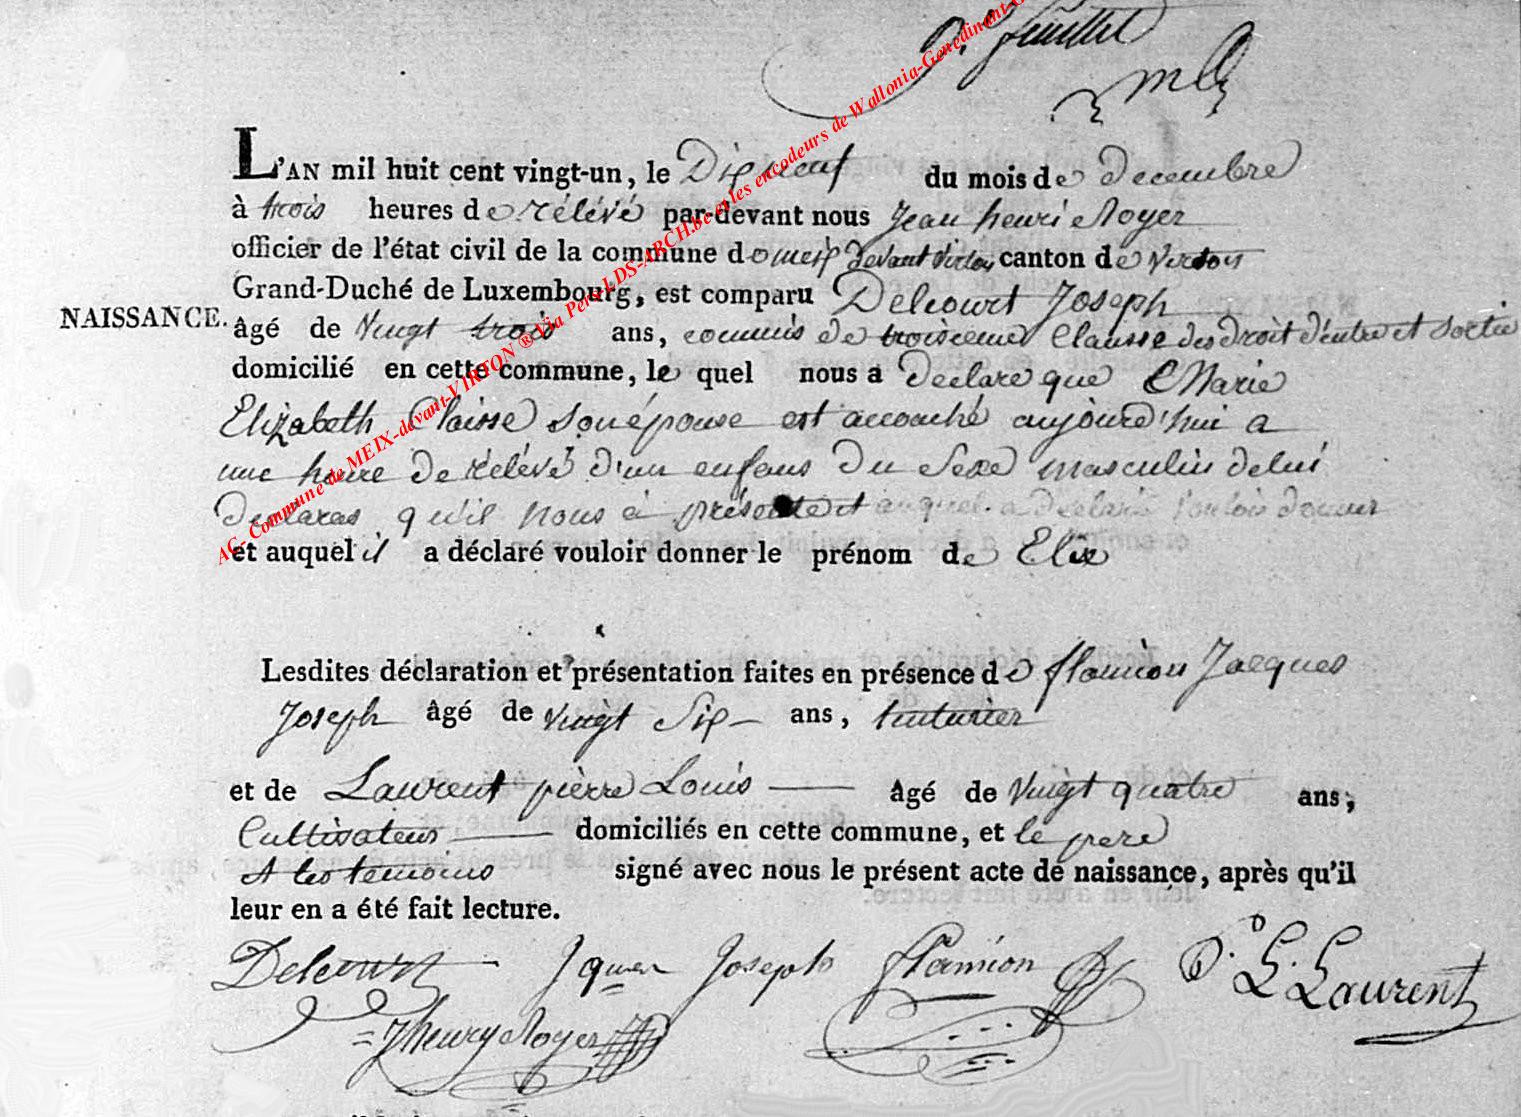 9.e feuillet
L'AN mil huit cent vingt-un, le Dix neuf du mois de Decembre
à trois heures de rélévé par-devant nous Jean henri Noyer
officier de l'état civil de la commune de meix devant Virton, canton de Virton
Grand-Duché de Luxembourg, est comparu Delcourt Joseph
NAISSANCE. âgé de Vingt trois ans, commis de troisieme Classse des droit d'entre et sortie
domicilié en cette commune, le quel nous a Declare que Marie
Elizabeth Claisse son épouse est accouché aujourd'hui a
une heure de rélévé d'un enfans du Sexe masculin delui
Declaras qu'il nous à présenté et auquel a Declaré vouloir donner
et auquel il a déclaré vouloir donner le prénom de Elie
Lesdites déclaration et présentation faites en présence de flamion Jacques
Joseph âgé de vingt Six ans, tinturier
et de Laurent pièrre Louis âgé de Vingt quatre ans,
Cultivateur domiciliés en cette commune, et le pere
et les temoins signé avec nous le présent acte de naissance, après qu'il
leur en a été fait lecture.
Delcourt Jques Joseph flamion P. L. Laurent
Jhenry Noyer
AC- Commune de MEIX-devant-VIRTON ® Via Pers LDS-ARCH.be et les encodeurs de Wallonia-Genedinant-G